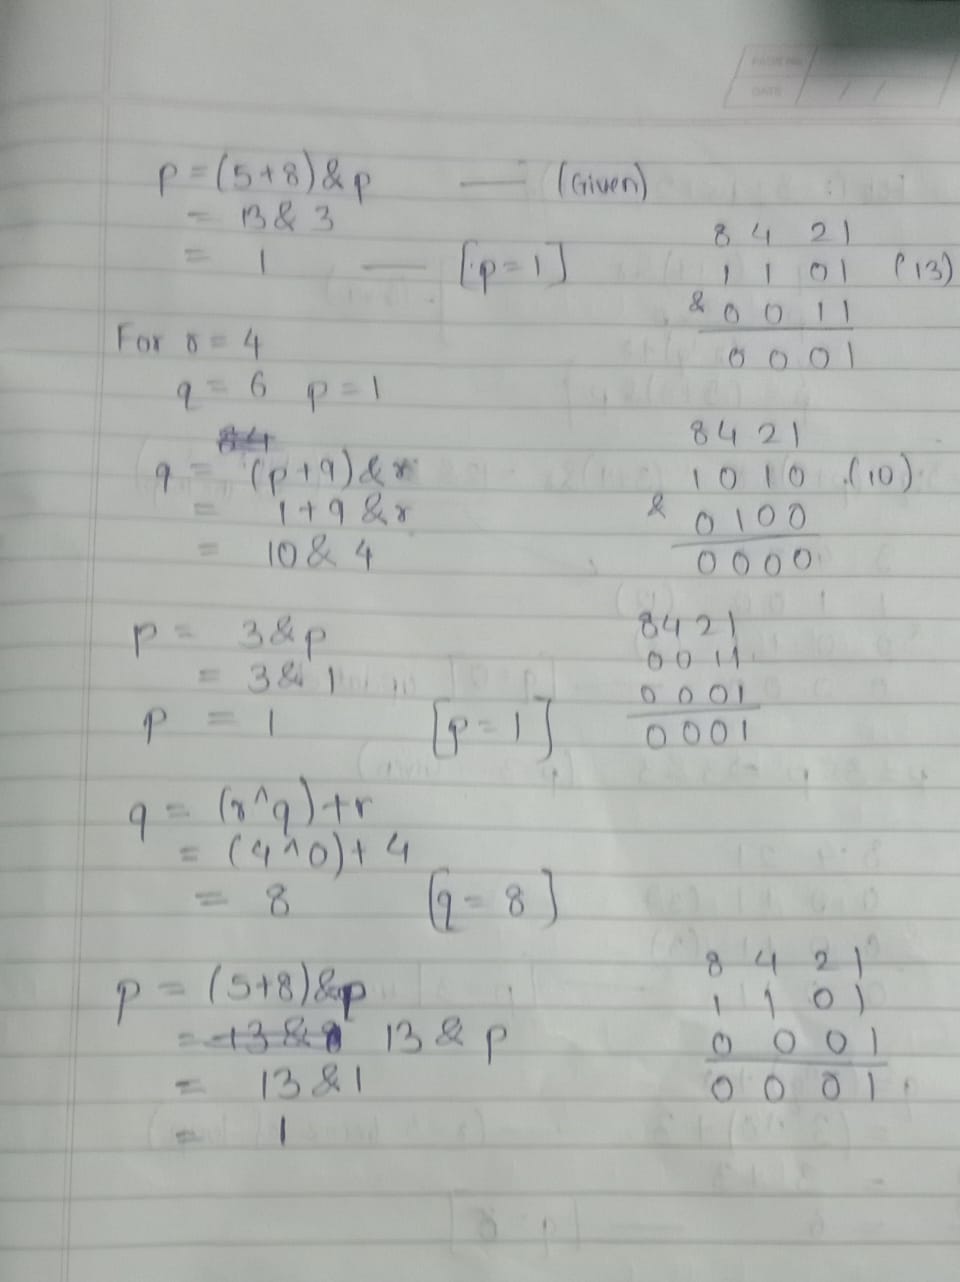 PAGE NO.
DATE / /
p = (5+8) & p — (Given)
= 13 & 3
= 1 — [p = 1]
8 4 2 1
1 1 0 1 (13)
& 0 0 1 1
0 0 0 1
For r = 4
q = 6 p = 1
q = (p+9) & r
= 1+9 & r
= 10 & 4
8 4 2 1
1 0 1 0 (10)
& 0 1 0 0
0 0 0 0
p = 3 & p
= 3 & 1
p = 1 [p = 1]
8 4 2 1
0 0 1 1
0 0 0 1
0 0 0 1
q = (r ^ q) + r
= (4 ^ 0) + 4
= 8 [q = 8]
p = (5+8) & p
= 13 & 8 13 & p
= 13 & 1
= 1
8 4 2 1
1 1 0 1
0 0 0 1
0 0 0 1